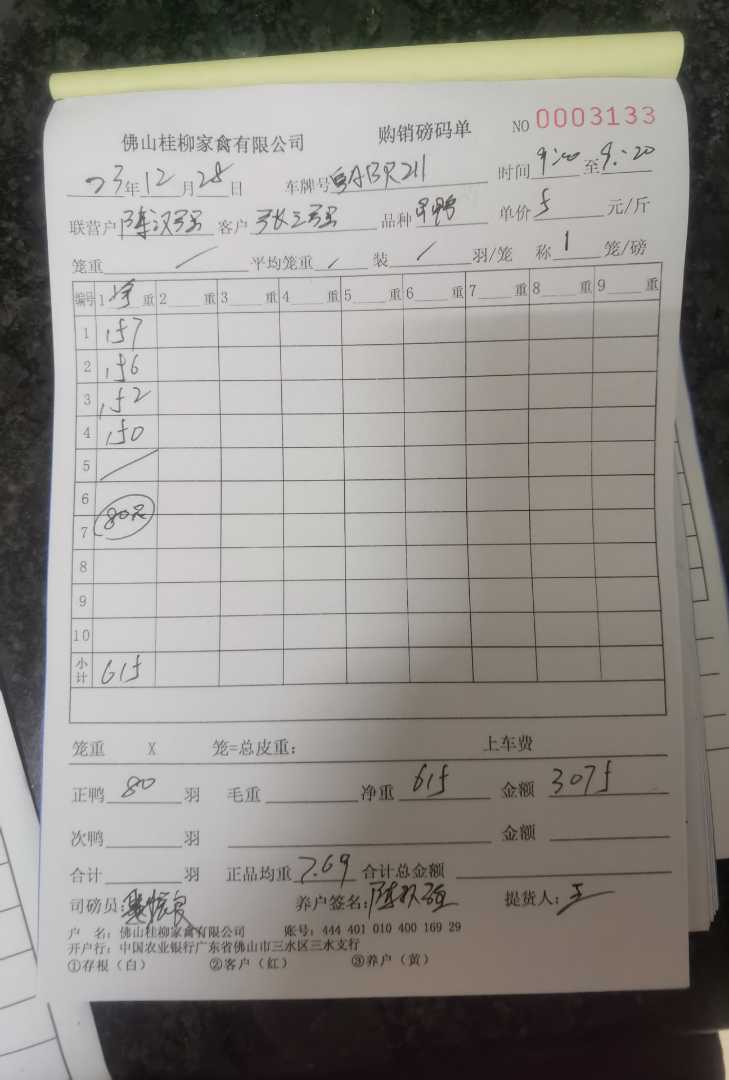 佛山桂柳家禽有限公司 购销磅码单 NO 0003133
23年12月28日 车牌号 ABR211 时间 9:00 至 9:20
联营户 陈汉强 客户 张三强 品种 单价 5 元/斤
笼重 / 平均笼重 / 装 / 羽/笼 称 1 笼/磅
编号 1 净 重 2 重 3 重 4 重 5 重 6 重 7 重 8 重 9 重
1 157
2 156
3 152
4 150
5 /
6
7 80只
8
9
10
小计 615
笼重 X 笼=总皮重: 上车费
正鸭 80 羽 毛重 净重 615 金额 3075
次鸭 羽 金额
合计 羽 正品均重 7.69 合计总金额
司磅员: 养户签名: 陈汉强 提货人: 王
户 名: 佛山桂柳家禽有限公司 账号: 444 401 010 400 169 29
开户行: 中国农业银行广东省佛山市三水区三水支行
①存根(白) ②客户(红) ③养户(黄)